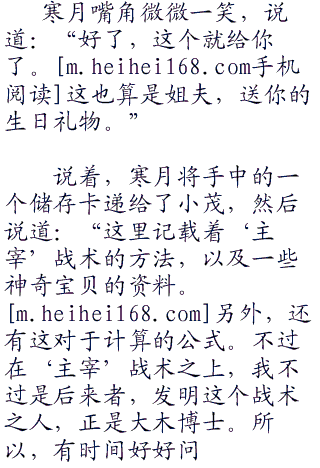 寒月嘴角微微一笑，说
道：“好了，这个就给你
了。[m.heihei168.com手机
阅读]这也算是姐夫，送你的
生日礼物。”
说着，寒月将手中的一
个储存卡递给了小茂，然后
说道：“这里记载着‘主
宰’战术的方法，以及一些
神奇宝贝的资料。
[m.heihei168.com]另外，还
有这对于计算的公式。不过
在‘主宰’战术之上，我不
过是后来者，发明这个战术
之人，正是大木博士。所
以，有时间好好问